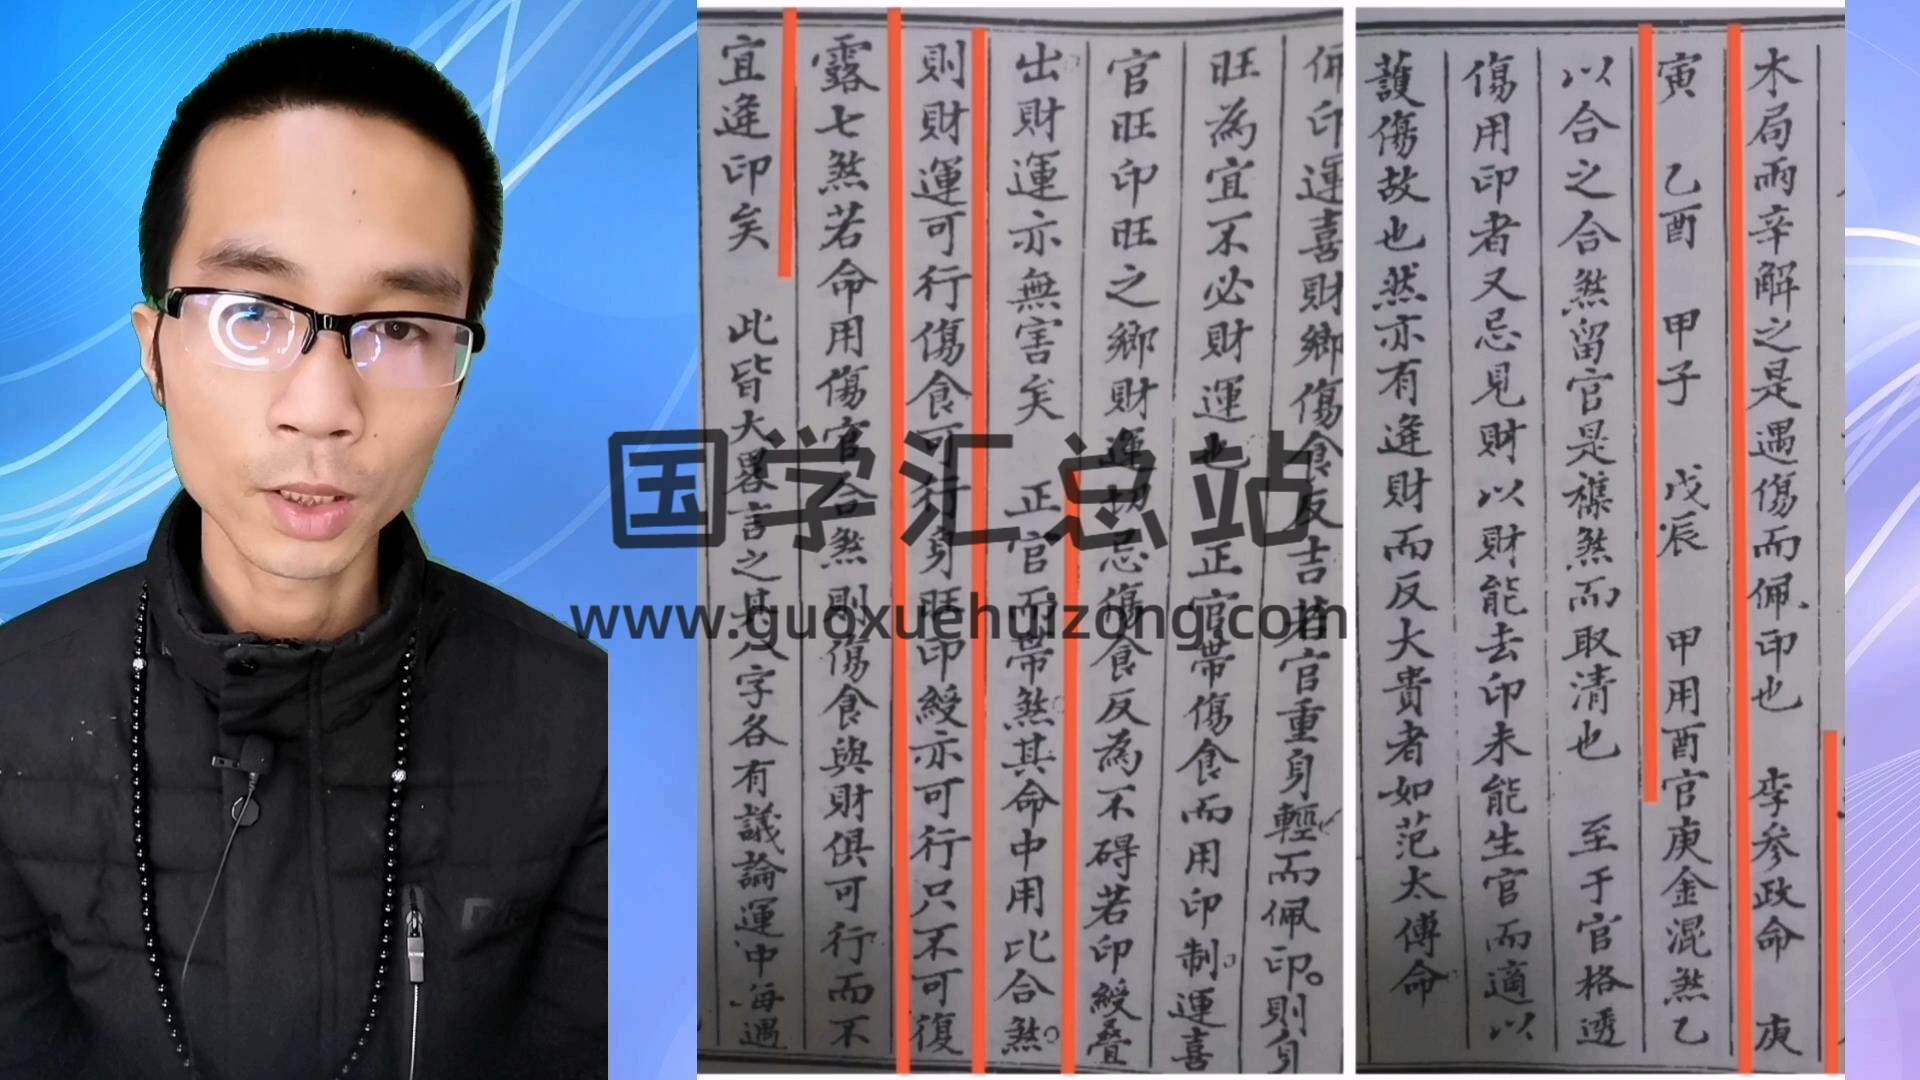 木局丙辛解之是遇傷而佩印也 李參政命 庚
寅 乙酉 甲子 戊辰 甲用酉官庚金混煞乙
以合之合煞留官是襍煞而取清也 至于官格透
傷用印者又忌見財以財能去印未能生官而適以
護傷故也然亦有逢財而反大貴者如范太傅命
佩印運喜財鄉傷食反吉若官重身輕而佩印則身
旺為宜不必財運也 正官帶傷食而用印制運喜
官旺印旺之鄉財運切忌傷食反為不碍若印綬叠
出財運亦無害矣 正官而帶煞其命中用比合煞
則財運可行傷食可行身旺印綬亦可行只不可復
露七煞若命用傷官合煞則傷食與財俱可行而不
宜逢印矣 此皆大畧言之其八字各有議論運中每遇
国学汇总站
www.guoxuehuizong.com